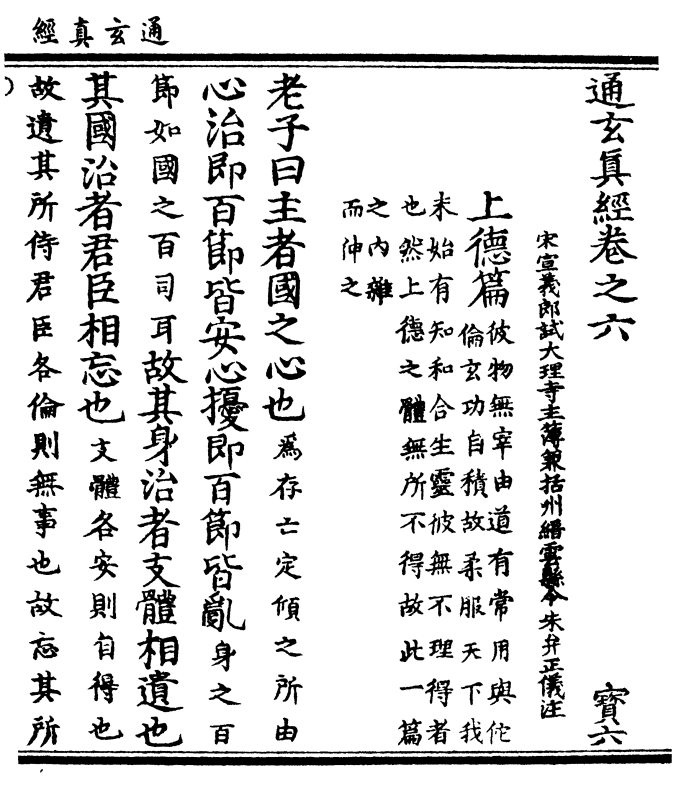 通玄真經
通玄眞經卷之六 寳六
宋宣義郎試大理寺主薄兼括州縉雲縣令朱弁正儀注
上德篇 彼物無宰由道有常用與佗
倫玄功自積故柔服天下我
未始有知和合生靈彼無不理得者
也然上德之體無所不得故此一篇
之內雜
而伸之
老子曰主者國之心也爲存亡定傾之所由
心治即百節皆安心擾即百節皆亂身之百
節如國之百司耳故其身治者支體相遺也
其國治者君臣相忘也支體各安則自得也
故遺其所侍君臣各倫則無事也故忘其所